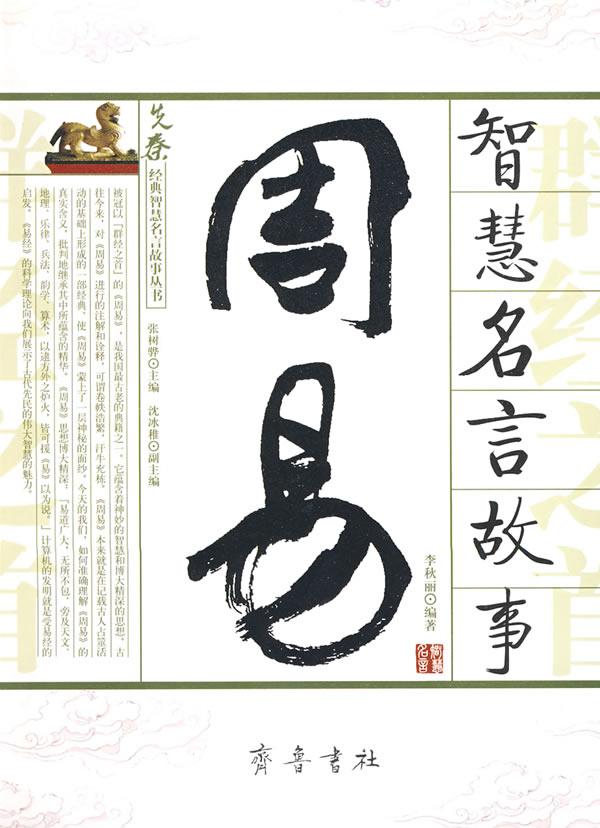 智慧名言故事
周易
李秋丽⊙编著
智慧
名言
先秦
经典智慧名言故事丛书
张树骅⊙主编 沈冰稚⊙副主编
被冠以“群经之首”的《周易》,是我国最古老的典籍之一。它蕴含着神妙的智慧和博大精深的思想,古
往今来,对《周易》进行的注解和诠释,可谓卷帙浩繁,汗牛充栋,《周易》本来就是在记载古人占筮活
动的基础上形成的一部经典,使《周易》蒙上了一层神秘的面纱。今天的我们,如何准确理解《周易》的
真实含义,批判地继承其中所蕴含的精华。《周易》思想博大精深,“易道广大,无所不包,旁及天文、
地理、乐律、兵法、韵学、算术,以逮方外之炉火,皆可援《易》以为说。”计算机的发明就是受易经的
启发,《易经》的科学理论向我们展示了古代先民的伟大智慧的魅力。
群经之首
群经之首
齐鲁书社